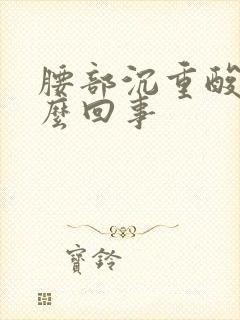 腰部沉重酸
麼回事
寶鈴